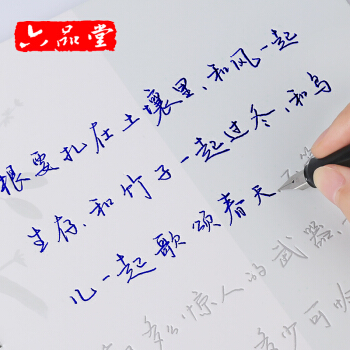 六品堂
根要扎在土壤里、和风一起
生存、和竹子一起过冬、和鸟
儿一起歌颂春天
惊人的武器
多少可